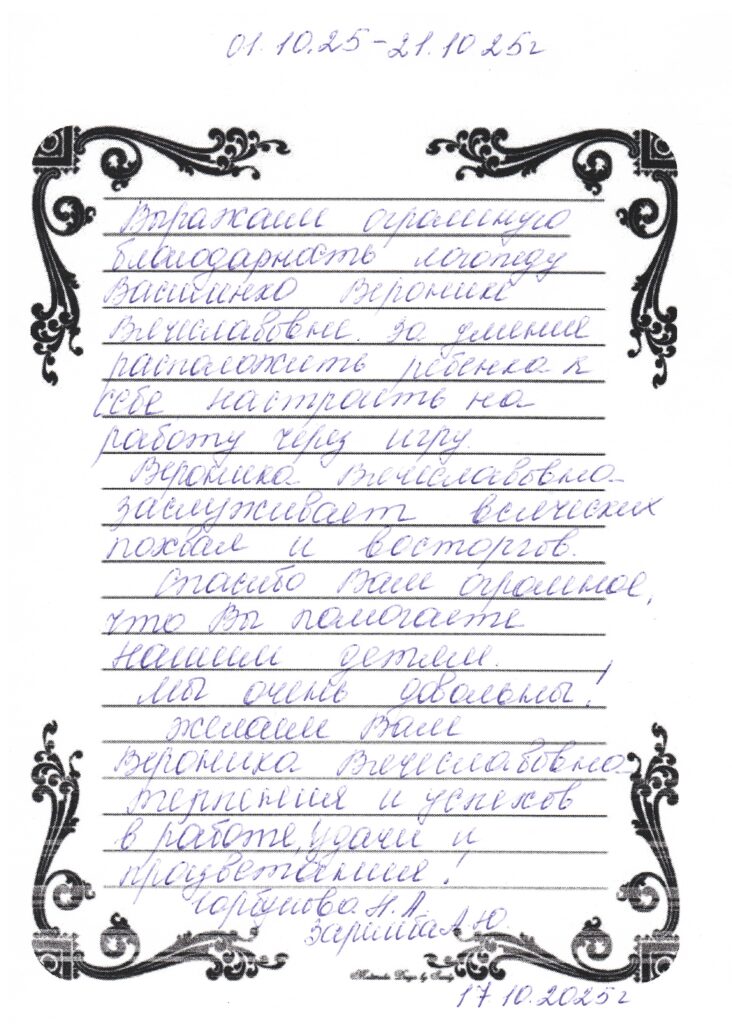 01.10.25-21.10 25г
Выражаем огромную
благодарность логопеду
Василенко Веронике
Вячеславовне. За умение
расположить ребенка к
себе настроить на
работу через игру.
Вероника Вячеславовна
заслуживает всяческих
похвал и восторгов.
Спасибо Вам огромное,
что Вы помогаете
нашим детям.
Мы очень довольны!
Желаем Вам
Вероника Вячеславовна
терпения и успехов
в работе, удачи и
процветания!
Горбунова Н.А.
А.Ю.
Design by
17 10.2025г